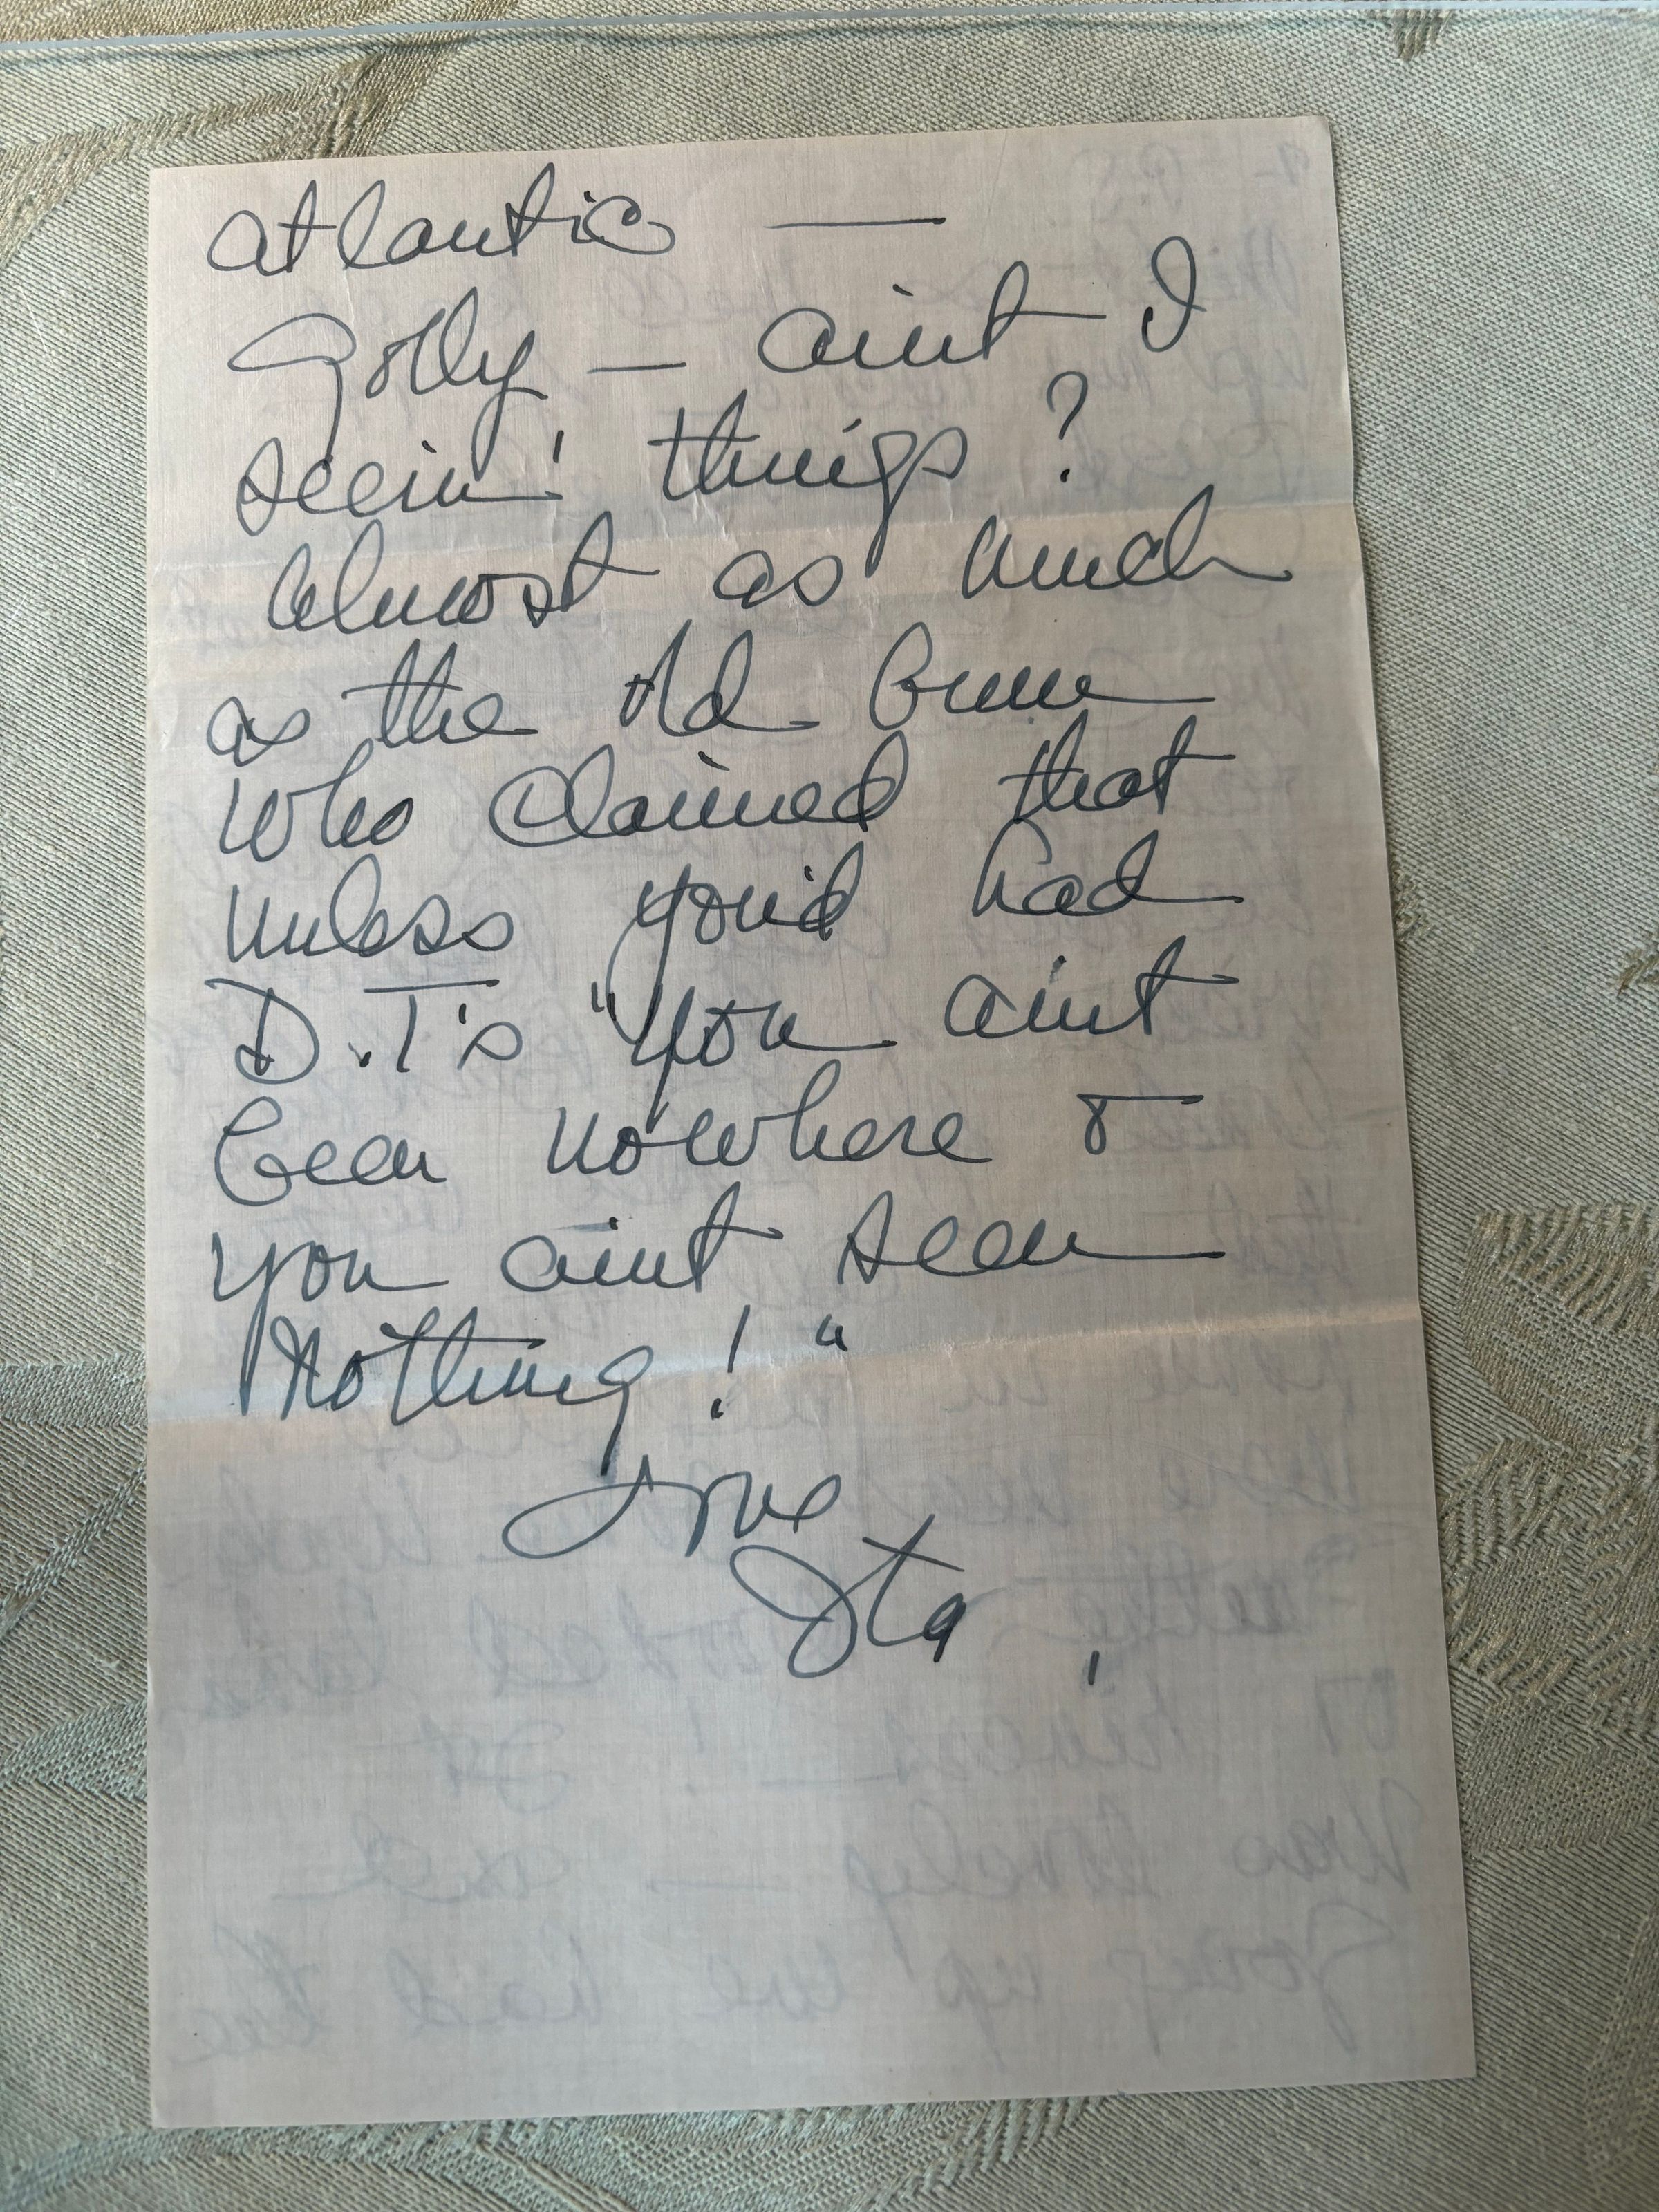 atlantic —
Golly — aint I
seein' things?
Almost as much
as the old bum
who claimed that
unless you'd had
D.T's "you aint
been nowhere &
you aint seen
nothing!"
Love